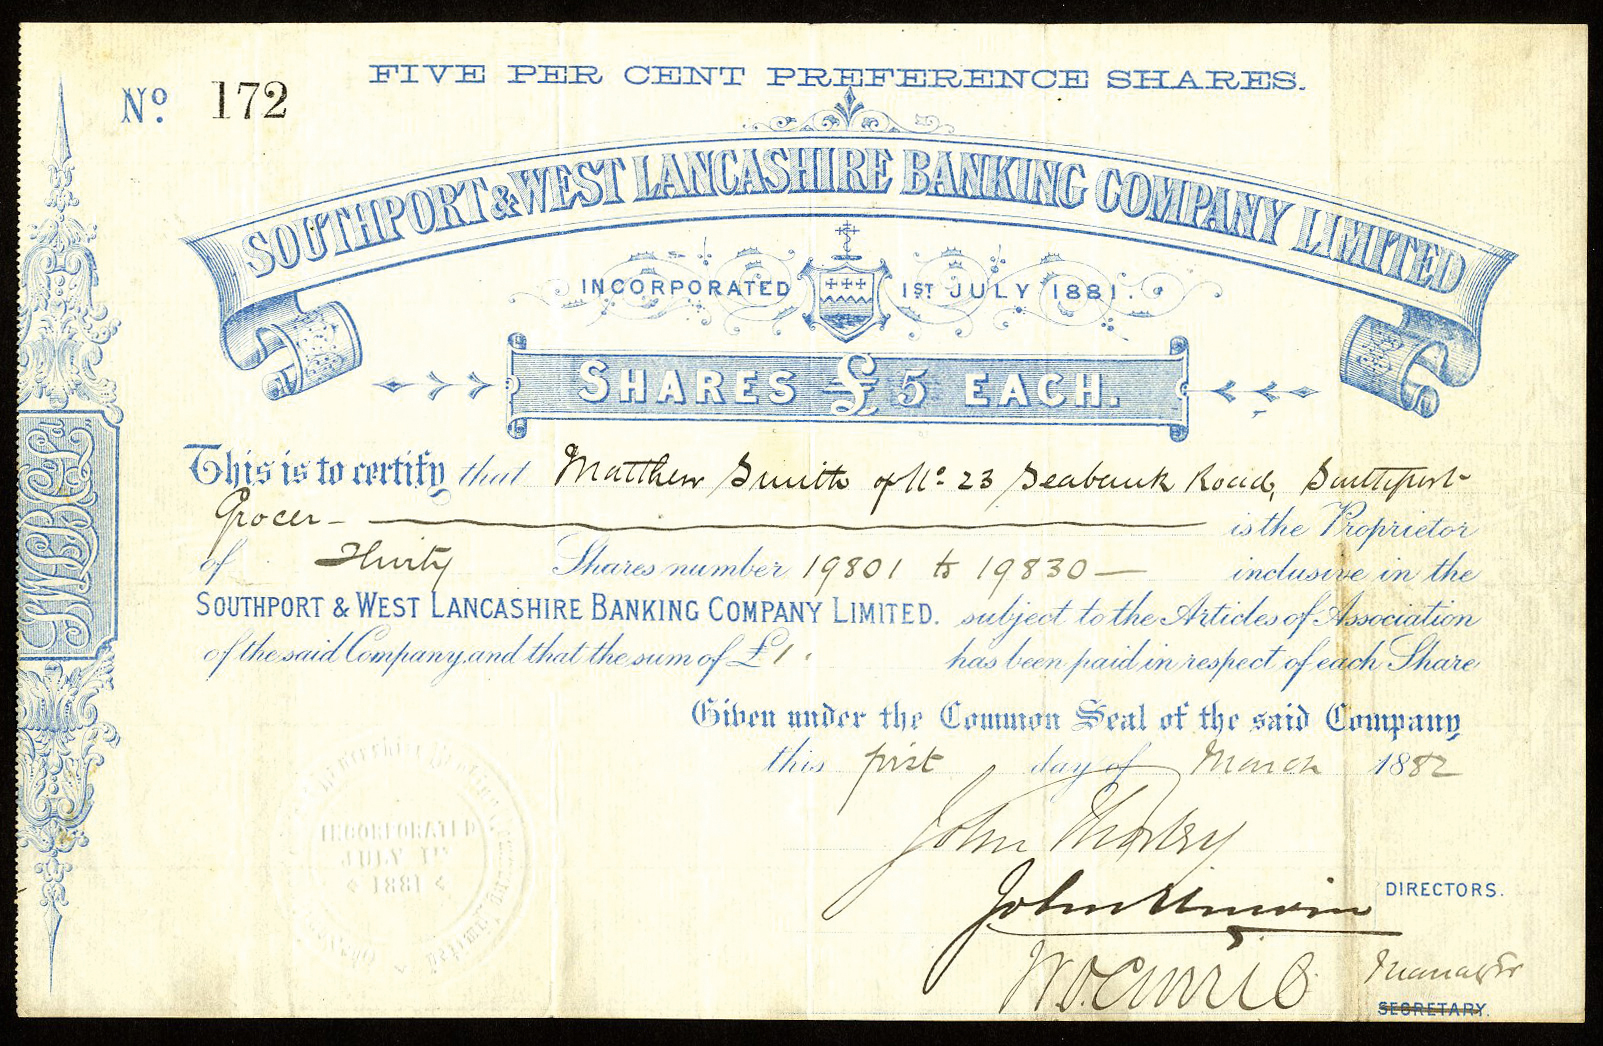 FIVE PER CENT PREFERENCE SHARES.
No. 172
SOUTHPORT & WEST LANCASHIRE BANKING COMPANY LIMITED
INCORPORATED 1ST JULY 1881.
SHARES £5 EACH.
This is to certify that Matthew Smith of No. 23 Seabank Road, Southport
Grocer - is the Proprietor
of Thirty Shares number 19801 to 19830 — inclusive in the
SOUTHPORT & WEST LANCASHIRE BANKING COMPANY LIMITED. subject to the Articles of Association
of the said Company, and that the sum of £1. has been paid in respect of each Share
Given under the Common Seal of the said Company,
this first day of March 1882
John
John Unwin
DIRECTORS.
W. D. Currie
Manager
SECRETARY.
SWLBCL
Lancashire Banking Company Limited
INCORPORATED
JULY 1ST
1881